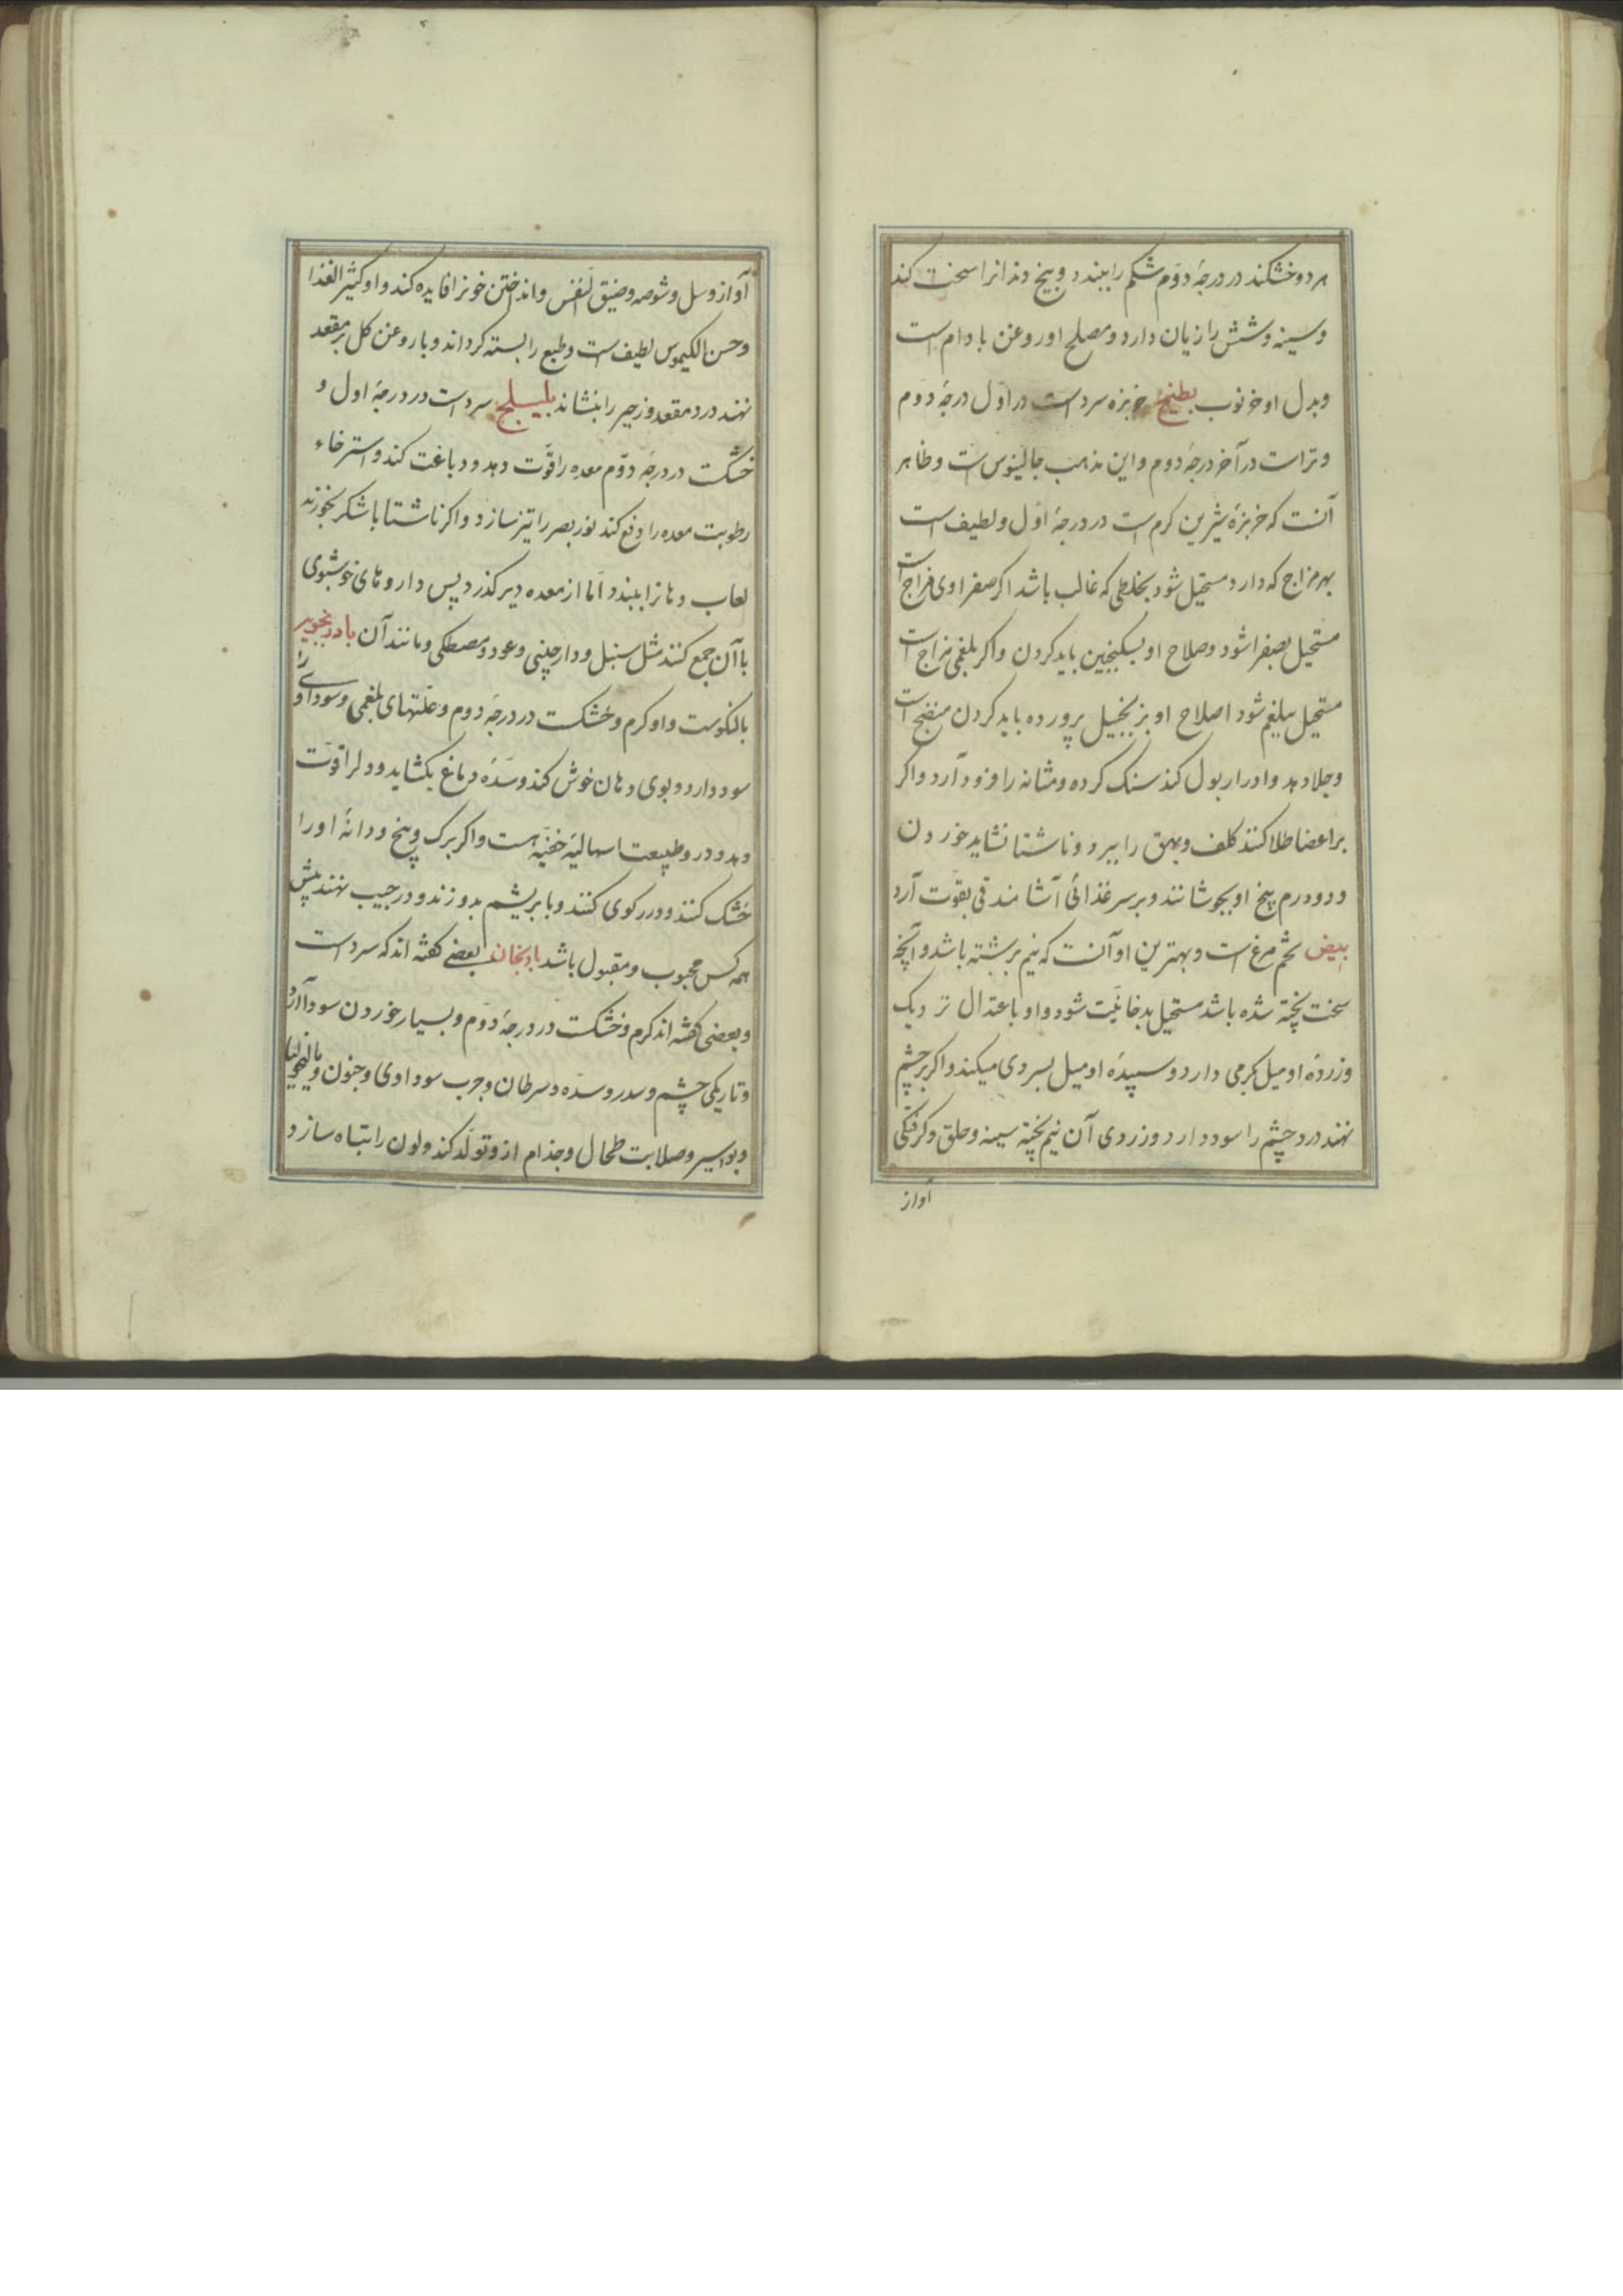 هر دو خشکند در درجهٔ دوّم شکم را ببندد و بیخ دندانرا سخت کند
و سینه و شش را زیان دارد و مصلح او روغن بادام است
و بدل او خرنوب بطیخ خربزه سرد است در اوّل درجهٔ دوّم
و تر است در آخر درجهٔ دوم و این مذهب جالینوس است و ظاهر
آنست که خربزهٔ شیرین کرم است در درجهٔ اوّل و لطیف است
بهر مزاج که دارد مستحیل شود بخلطی که غالب باشد اکر صفراوی مزاج است
مستحیل بصفرا شود و صلاح او بسکنجبین باید کردن و اکر بلغمی مزاج است
مستحیل ببلغم شود اصلاح او بزنجبیل پرورده باید کردن منضج است
و جلا دهد و ادرار بول کند سنک کرده و مثانه را فرود آرد و اکر
بر اعضا طلا کنند کلف و بهق را ببرد و ناشتا نشاید خوردن
و دو درم بیخ او بجوشانند و بر سر غذائی آشامند قی بقوّت آرد
بیض تخم مرغ است و بهترین او آنست که نیم برشته باشد و آنچه
سخت پخته شده باشد مستحیل بدخانیّت شود و او باعتدال نزدیک
و زردهٔ او میل بکرمی دارد و سپیدهٔ او میل بسردی میکند و اکر بر چشم
نهند درد چشم را سود دارد و زردی آن نیم پخته سینه و حلق و کرفتکی
آواز
آواز و سل و شوصه و ضیق النّفس و انداختن خونرا فایده کند و او کثیر الغذا
و حسن الکیموس لطیف است و طبع را بسته کرداند و با روغن کل بر مقعد
نهند درد مقعد و زحیر را بنشاند بلیلج سرد است در درجهٔ اول و
خشکست در درجهٔ دوّم معده را قوّت دهد و دباغت کند و استرخاء
رطوبت معده را دفع کند نور بصر را تیز سازد و اکر ناشتا با شکر بخورند
لعاب دهانرا ببندد امّا از معده دیر کذرد پس داروهای خوشبوی
با آن جمع کنند مثل سنبل و دارچینی و عود و مصطکی و مانند آن بادرنجبویه
بالنکوست و او کرم و خشکست در درجهٔ دوم و علّتهای بلغمی و سوداوی را
سود دارد و بوی دهان خوش کند و سدّهٔ دماغ بکشاید و دلرا قوّت
دهد و در و طبیعت اسهالیّهٔ خفیّه است و اکر برک و بیخ و دانهٔ او را
خشک کنند و در رکوی کنند و با بریشم بدوزند و در جیب نهند پیش
همه کس محبوب و مقبول باشد بادنجان بعضے کفته اند که سرد است
و بعضی کفته اند کرم و خشکست در درجهٔ دوّم و بسیار خوردن سودا آرد
و تاریکی چشم و سدر و سدّه و سرطان و جرب سوداوی و جنون و مالیخولیا
و بواسیر و صلابت طحال و جذام ازو تولّد کند و لون را تباه سازد